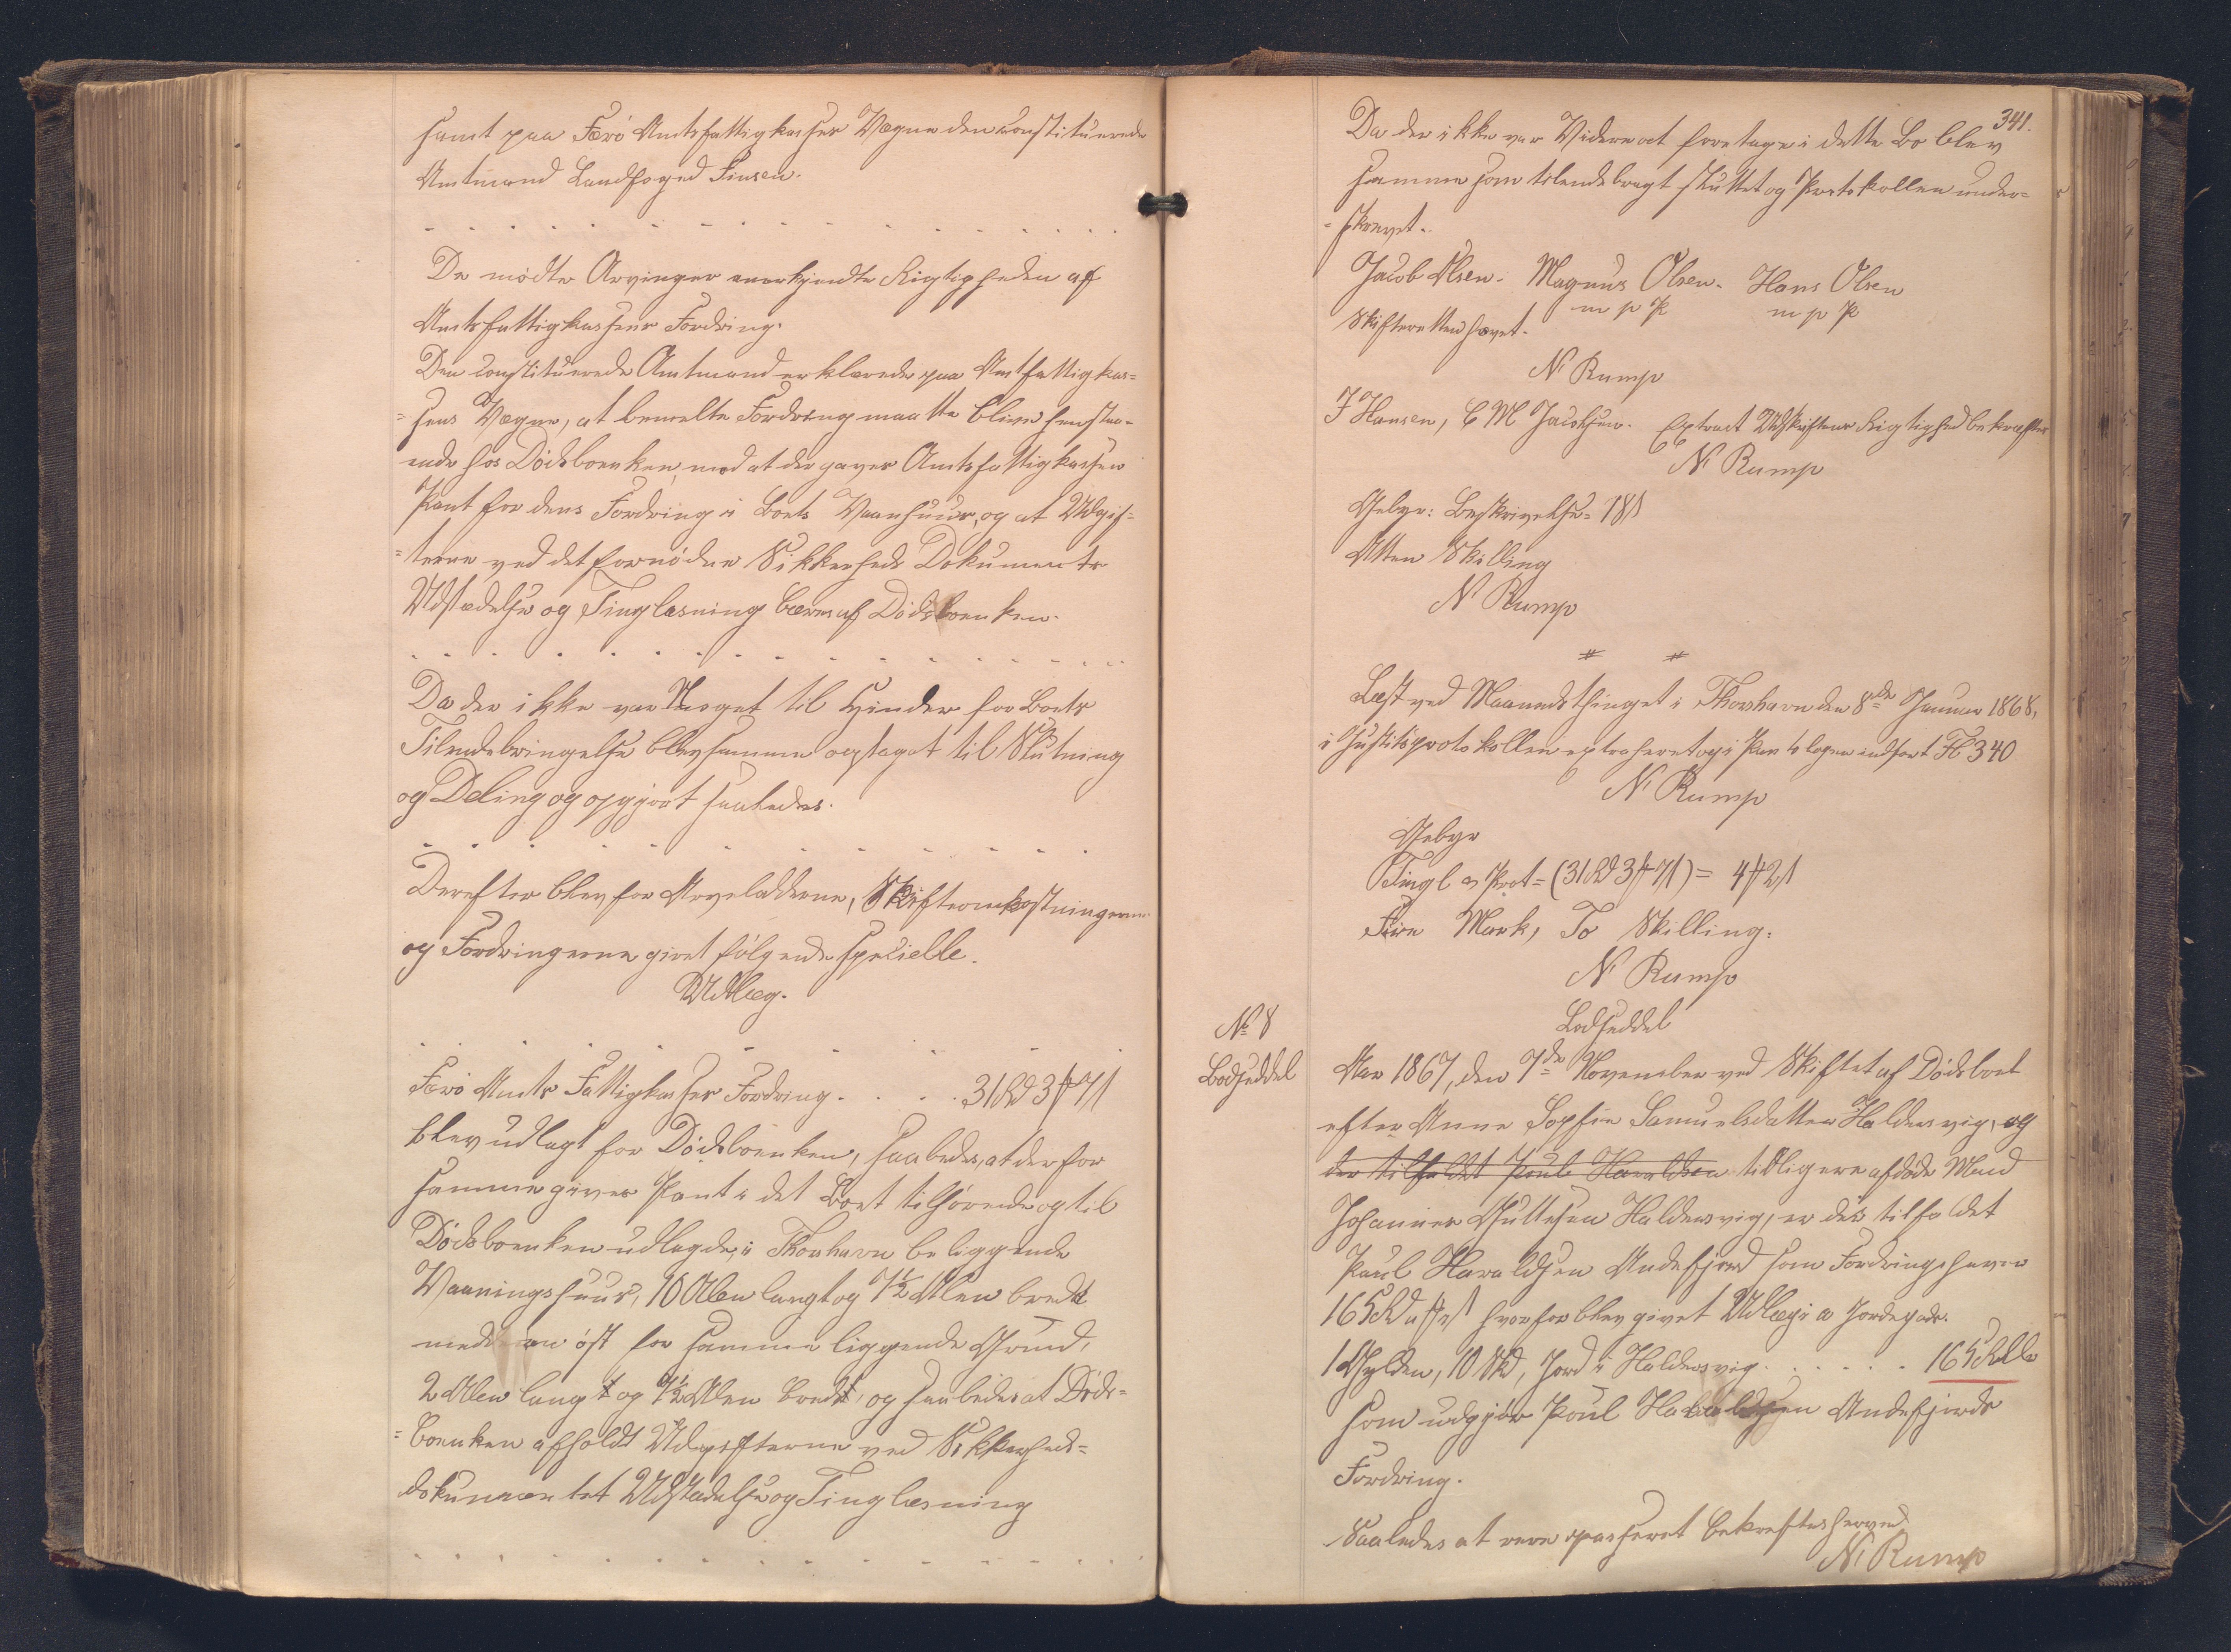 samt paa Færö Amtsfattigkasses Vegne den constituerede
Amtmand Landfoged Finsen.
De mödte Arvinger anerkjendte Rigtigheden af
Amtsfattigkassens Fordring.
Den constituerede Amtmand erklærede paa Amtsfattigkas=
=sens Vegne, at bemelte Fordring maatte blive henstaa-
ende hos Dödsboenken, mod at der gaves Amtsfattigkassen
Pant for dens Fordring i Boets Vaanhuus, og at Udgif=
=terne ved det fornödne Sikkerheds Dokuments
Udstædelse og Tinglæsning bæres af Dödsboenken.
Da der ikke var Noget til Hinder for Boets
Tilendebringelse blev samme optaget til Slutning
og Deling og opgjort saaledes.
Derefter blev for Arvelodderne, Skifteomkostningerne
og Fordringerne givet fölgende specielle
Udlæg.
Færö Amts Fattigkasses Fordring . . . . 31 Rd 3 ₻ 7 ß
blev udlagt for Dödsboenken, saaledes, at der for
samme gives Pant i det Boet tilhörende og til
Dödsboenken udlagde, i Thorshavn beliggende
Vaaningshuus, 10 Alen langt og 7½ Alen bredt
med en öst for samme liggende Grund,
2 Alen langt og 7½ Alen bredt, og saaledes at Döds=
=boenken afholdt Udgifterne ved Sikkerheds=
dokumentet Udstædelse og Tinglæsning
341.
Da der ikke var Videre at foretage i dette Bo blev
samme som tilendebragt sluttet og Protokollen under=
=skrevet.
Jacob Olsen. Magnus Olsen. Hans Olsen
m p P m p P
Skifteretten hævet.
N. Rump
J Hansen, C M Jacobsen. Extract Udskriftens Rigtighed bekræftes
N. Rump
Gebyr: Beskrivelse = 18 ß
Atten Skilling
N. Rump
# #
Læst ved Maanedsthinget i Thorshavn den 8de Januar 1868,
i Justitsprotokollen extraheret og i Pantebogen indfört Fo 340
N. Rump
Gebyr
Tingl og Prot = (31 Rd 3 ₻ 7 ß) = 4 ₻ 2 ß
Fire Mark, To Skilling.
N. Rump
No 8
Lodseddel
Lodseddel
Aar 1867, den 7de November ved Skiftet af Dödsboet
efter Anne Sophie Samuelsdatter Haldersvig, og
der tilfaldet Poul Haraldsen tidligere afdöde Mand
Johannes Guttesen Haldersvig, er der tilfaldet
Poul Haraldsen Andefjord som Fordringshaver
165 Rd " ₻ " ß hvorfor blev givet Udlæg i a Jordegods.
1 Gylden, 10 Skd, Jord i Haldersvig . . . . . . 165 Rdlr
som udgjör Poul Haraldsen Andefjords
Fordring.
Saaledes at være passeret bekræftes herved
N. Rump